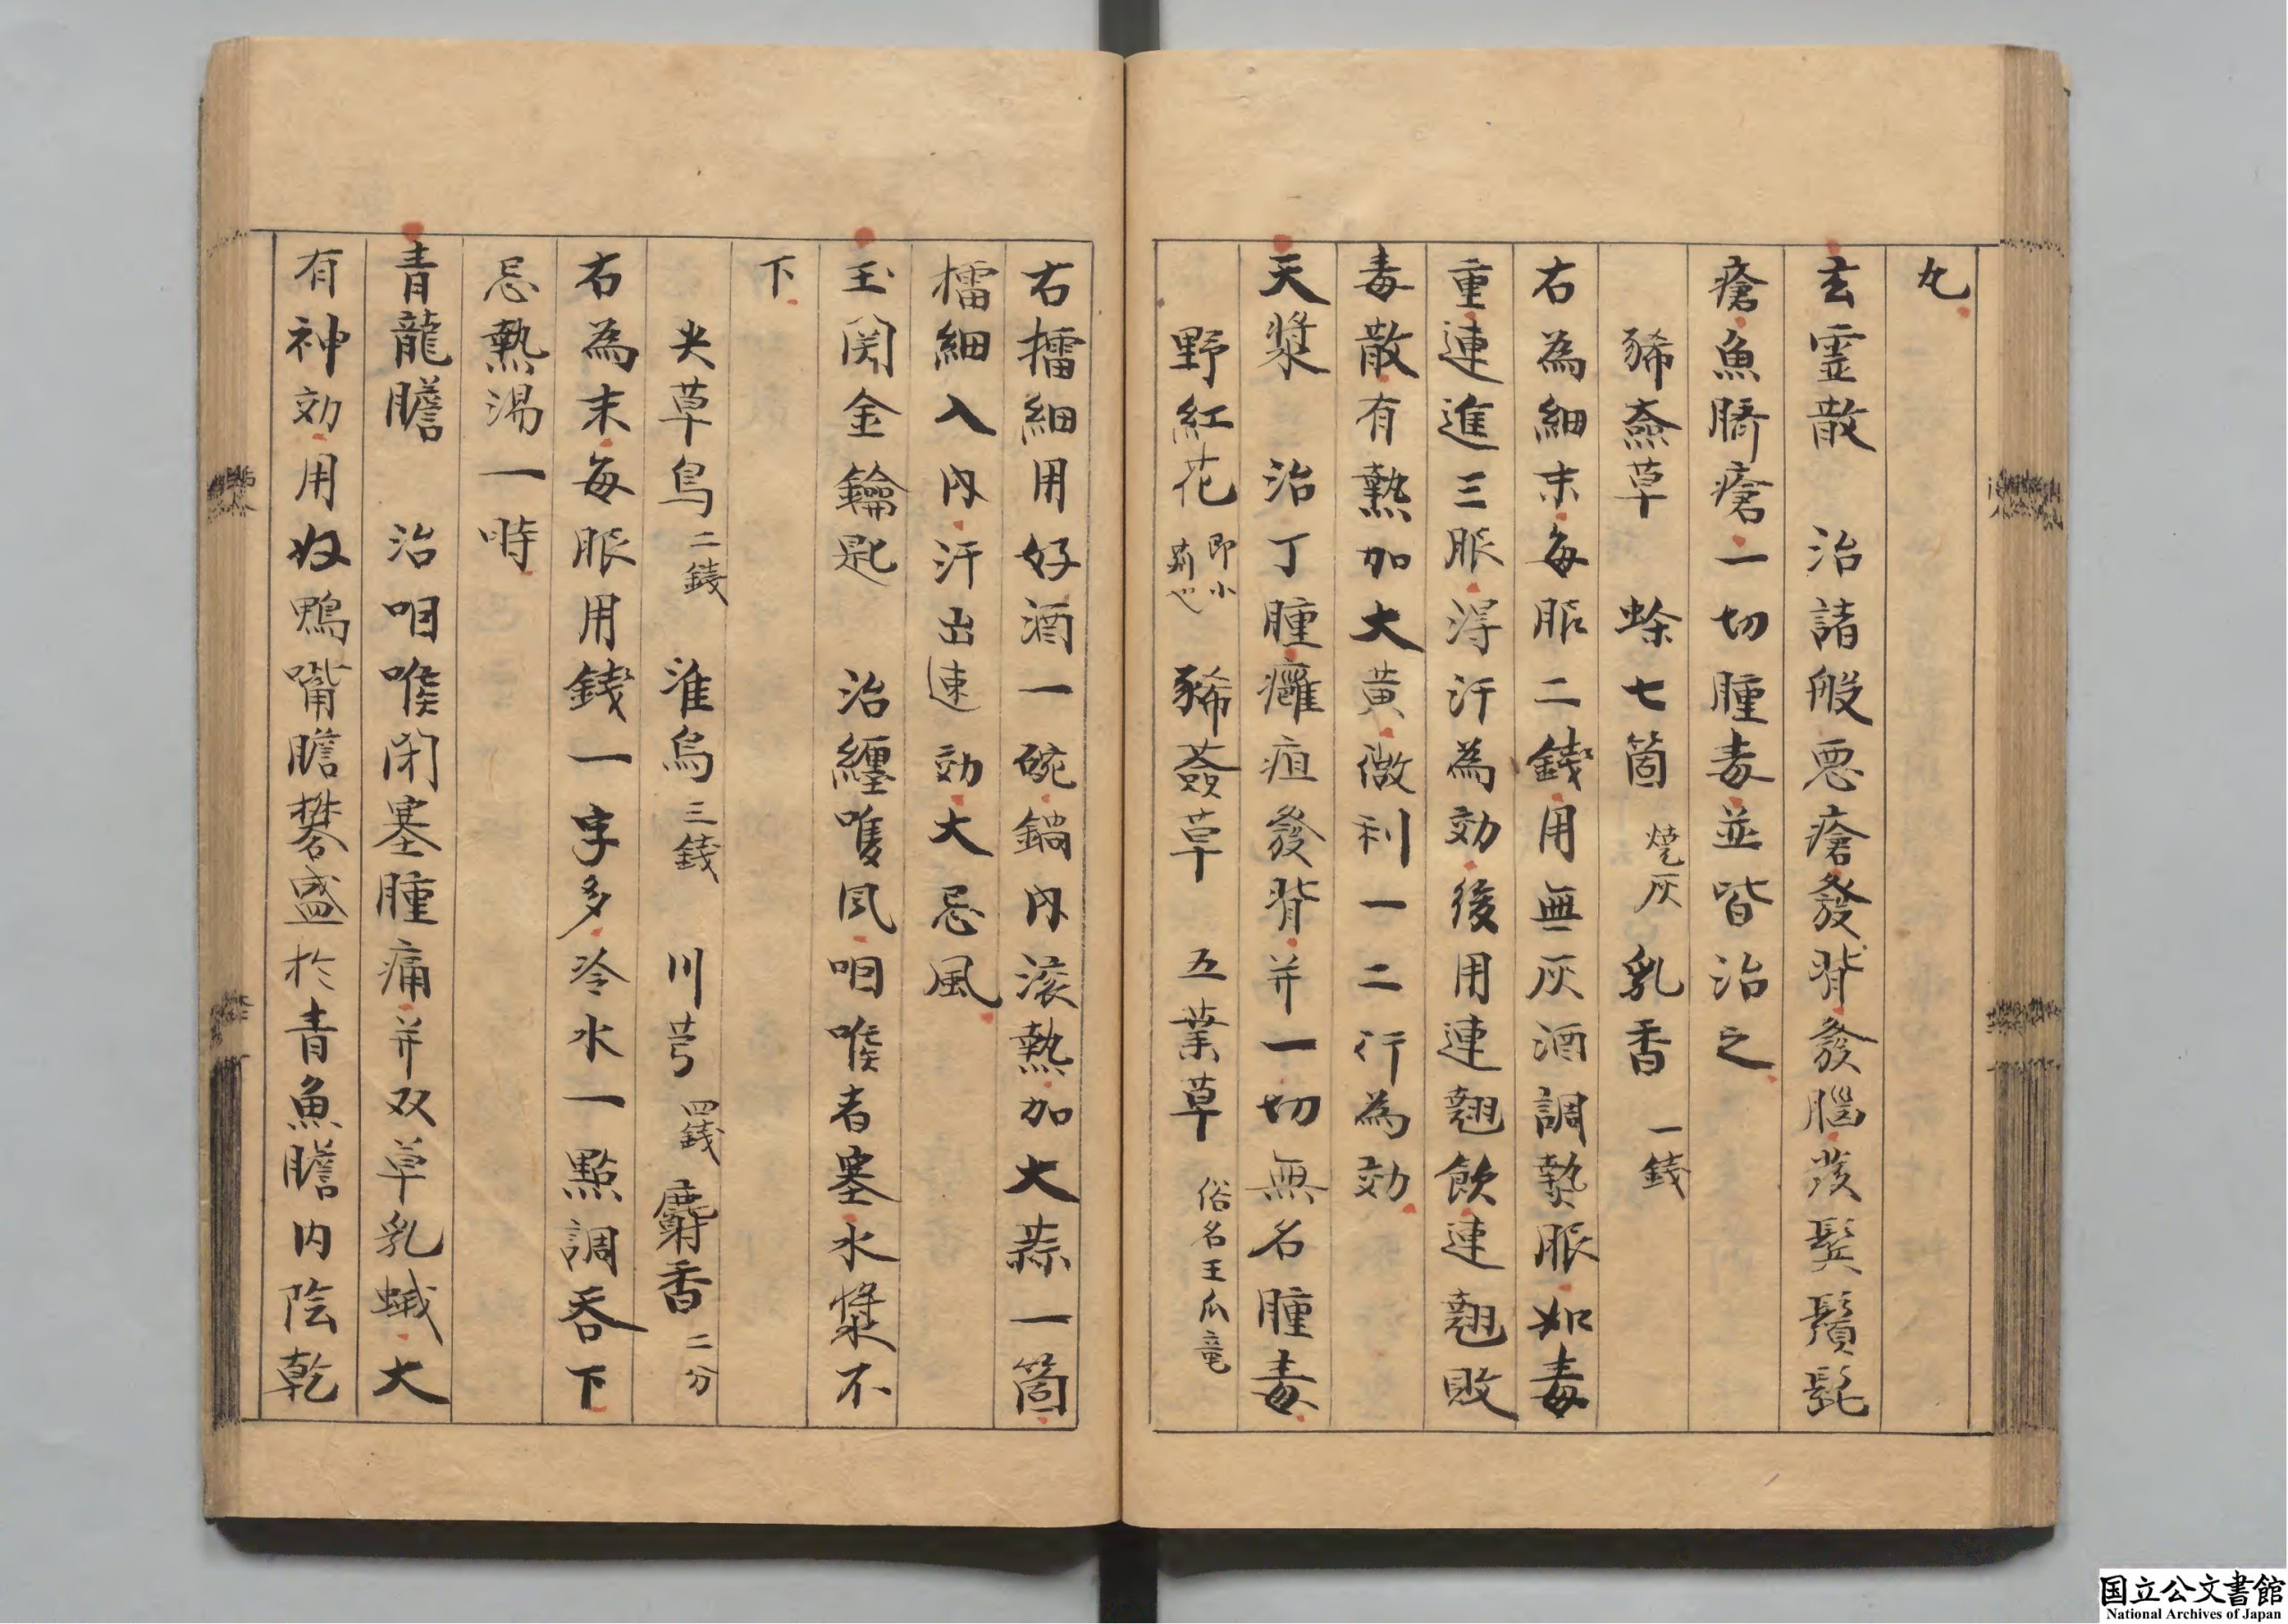 丸
玄霊散　治諸般悪瘡發背發腦發鬂鬚髭
瘡魚臍瘡一切腫毒並皆治之
豨薟草　蛇七箇 焼灰　乳香 一錢
右為細末每服二錢用無灰酒調熱服如毒
重連進三服淂汗為効後用連翹飲連翹敗
毒散有熱加大黄微利一二行為効
天漿　治丁腫癰疽發背并一切無名腫毒
野紅花 即小薊也　豨薟草　五葉草 俗名王瓜竜
右擂細用好酒一碗鍋內滚熱加大蒜一箇
擂細入內汗出速効大忌風
玉関金鑰匙　治纏喉風咽喉者塞水漿不
下
尖草烏 二錢　淮烏 三錢　川芎 四錢　麝香 二分
右為末每服用錢一字多冷水一點調吞下
忌熱湯一時
青龍膽　治咽喉閉塞腫痛并双单乳蛾大
有神効用好鴨嘴膽礬盛於青魚膽内陰乾
国立公文書館
National Archives of Japan